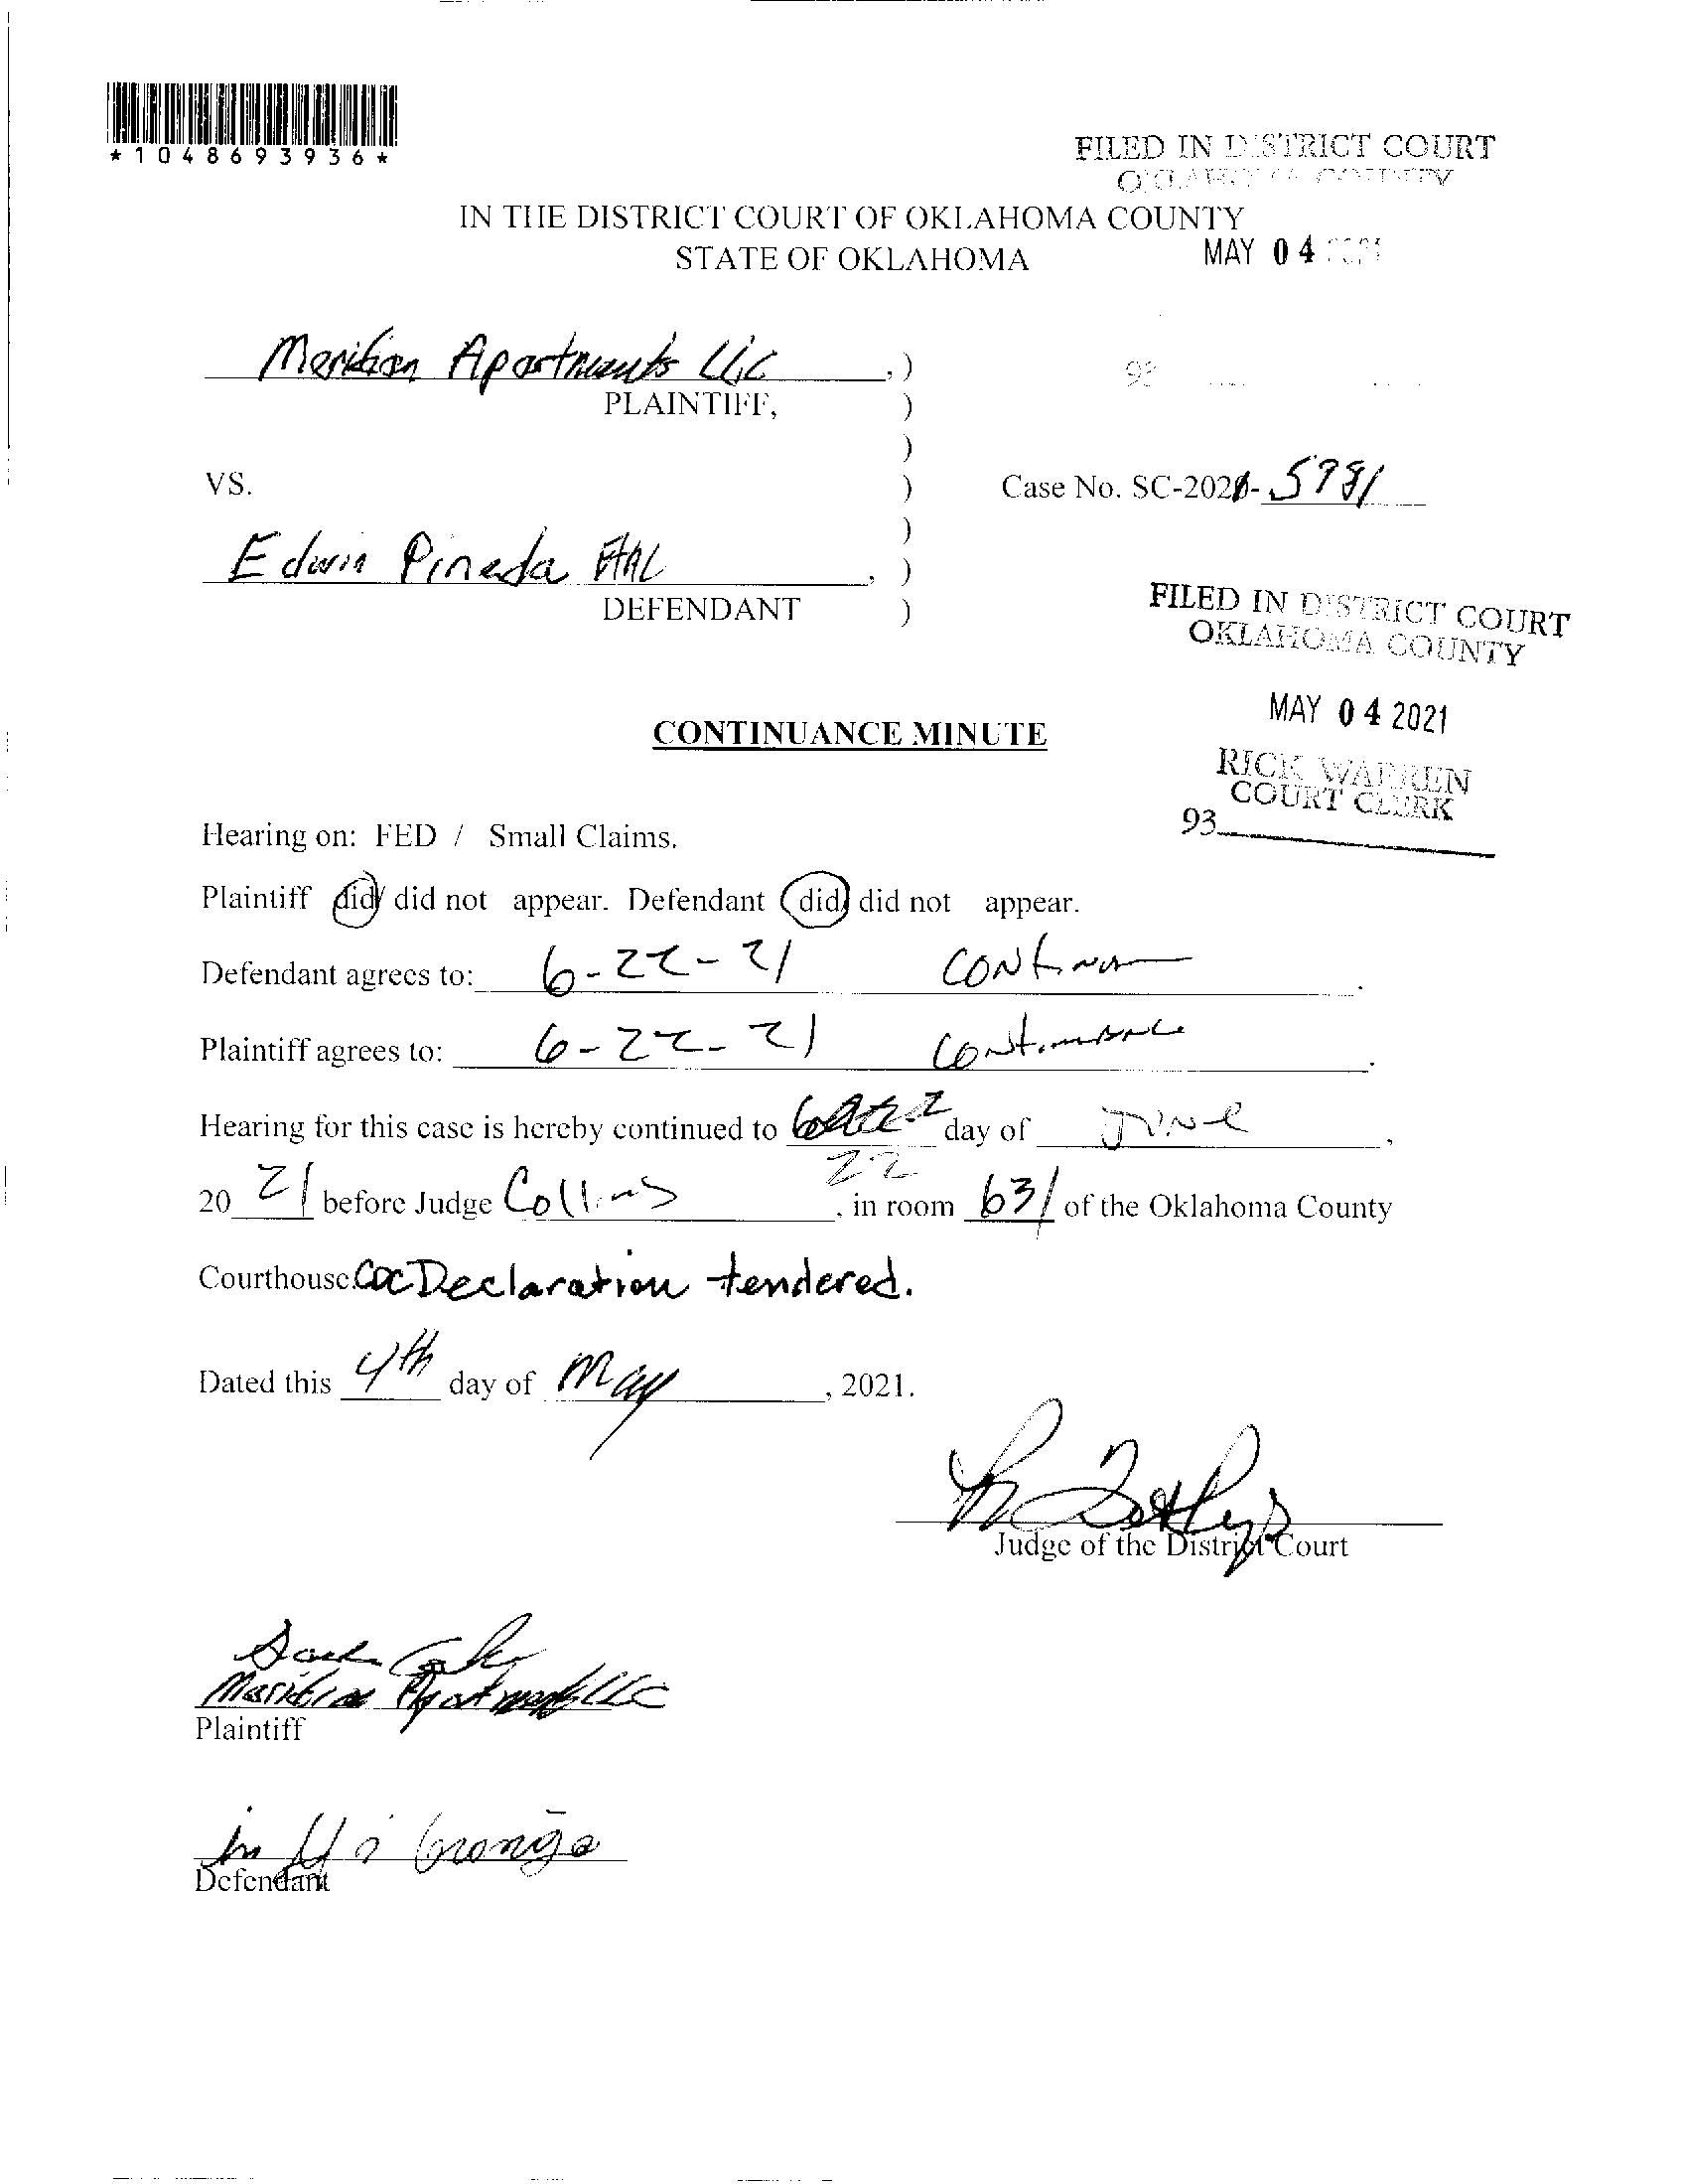 *1048693936*
FILED IN DISTRICT COURT
OKLAHOMA COUNTY
IN THE DISTRICT COURT OF OKLAHOMA COUNTY
STATE OF OKLAHOMA
MAY 04 2021
Meridian Apartments LLC ,)
PLAINTIFF, )
)
VS. ) Case No. SC-2021-
)
Edwin Pineda , )
DEFENDANT )
FILED IN DISTRICT COURT
OKLAHOMA COUNTY
MAY 04 2021
CONTINUANCE MINUTE
RICK WARREN
COURT CLERK
93
Hearing on: FED / Small Claims.
Plaintiff did/ did not appear. Defendant did/ did not appear.
Defendant agrees to: 6-22-21 .
Plaintiff agrees to: 6-22-21 Continuance .
Hearing for this case is hereby continued to day of June ,
22
2021 before Judge Collins , in room 631 of the Oklahoma County
Courthouse. CDC Declaration tendered.
Dated this 4th day of May , 2021.
Judge of the District Court
Meridian Apartments LLC
Plaintiff
Defendant